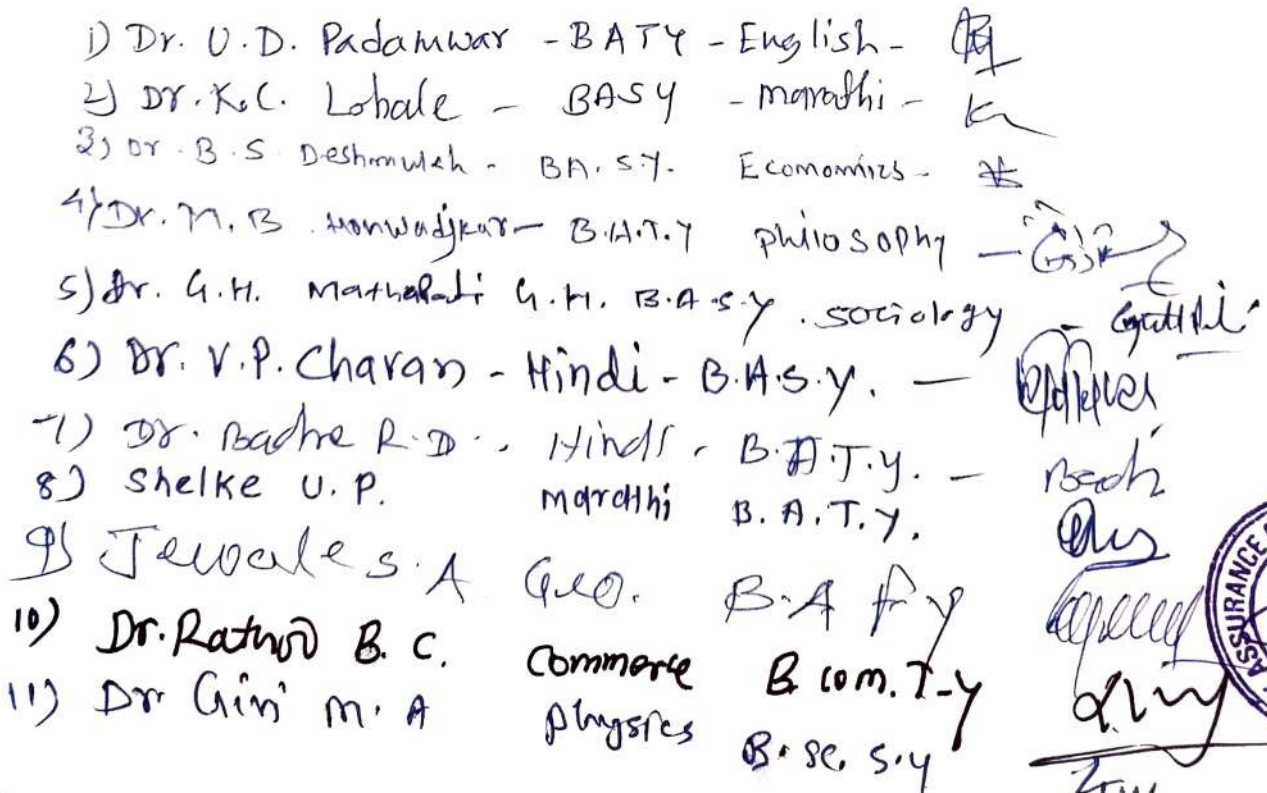 1) Dr. U.D. Padamwar - BATY - English -
2) Dr. K.C. Lobale - BASY - marathi -
3) Dr. B.S. Deshmukh - BA. S.Y. Economics -
4) Dr. M.B. Honwadjkar - B.A.T.Y philosophy -
5) Dr. G.H. Mathapati G.H. B.A.S.Y. sociology -
6) Dr. V.P. Chavan - Hindi - B.A.S.Y. -
7) Dr. Badhe R.D. Hindi B.A.T.Y. -
8) Shelke U.P. marathi B.A.T.Y.
9) Jewale S.A Geo. B.A F Y
10) Dr. Rathod B.C. Commerce B com. T-y
11) Dr Giri M.A physics B.sc. S.y
ASSURANCE